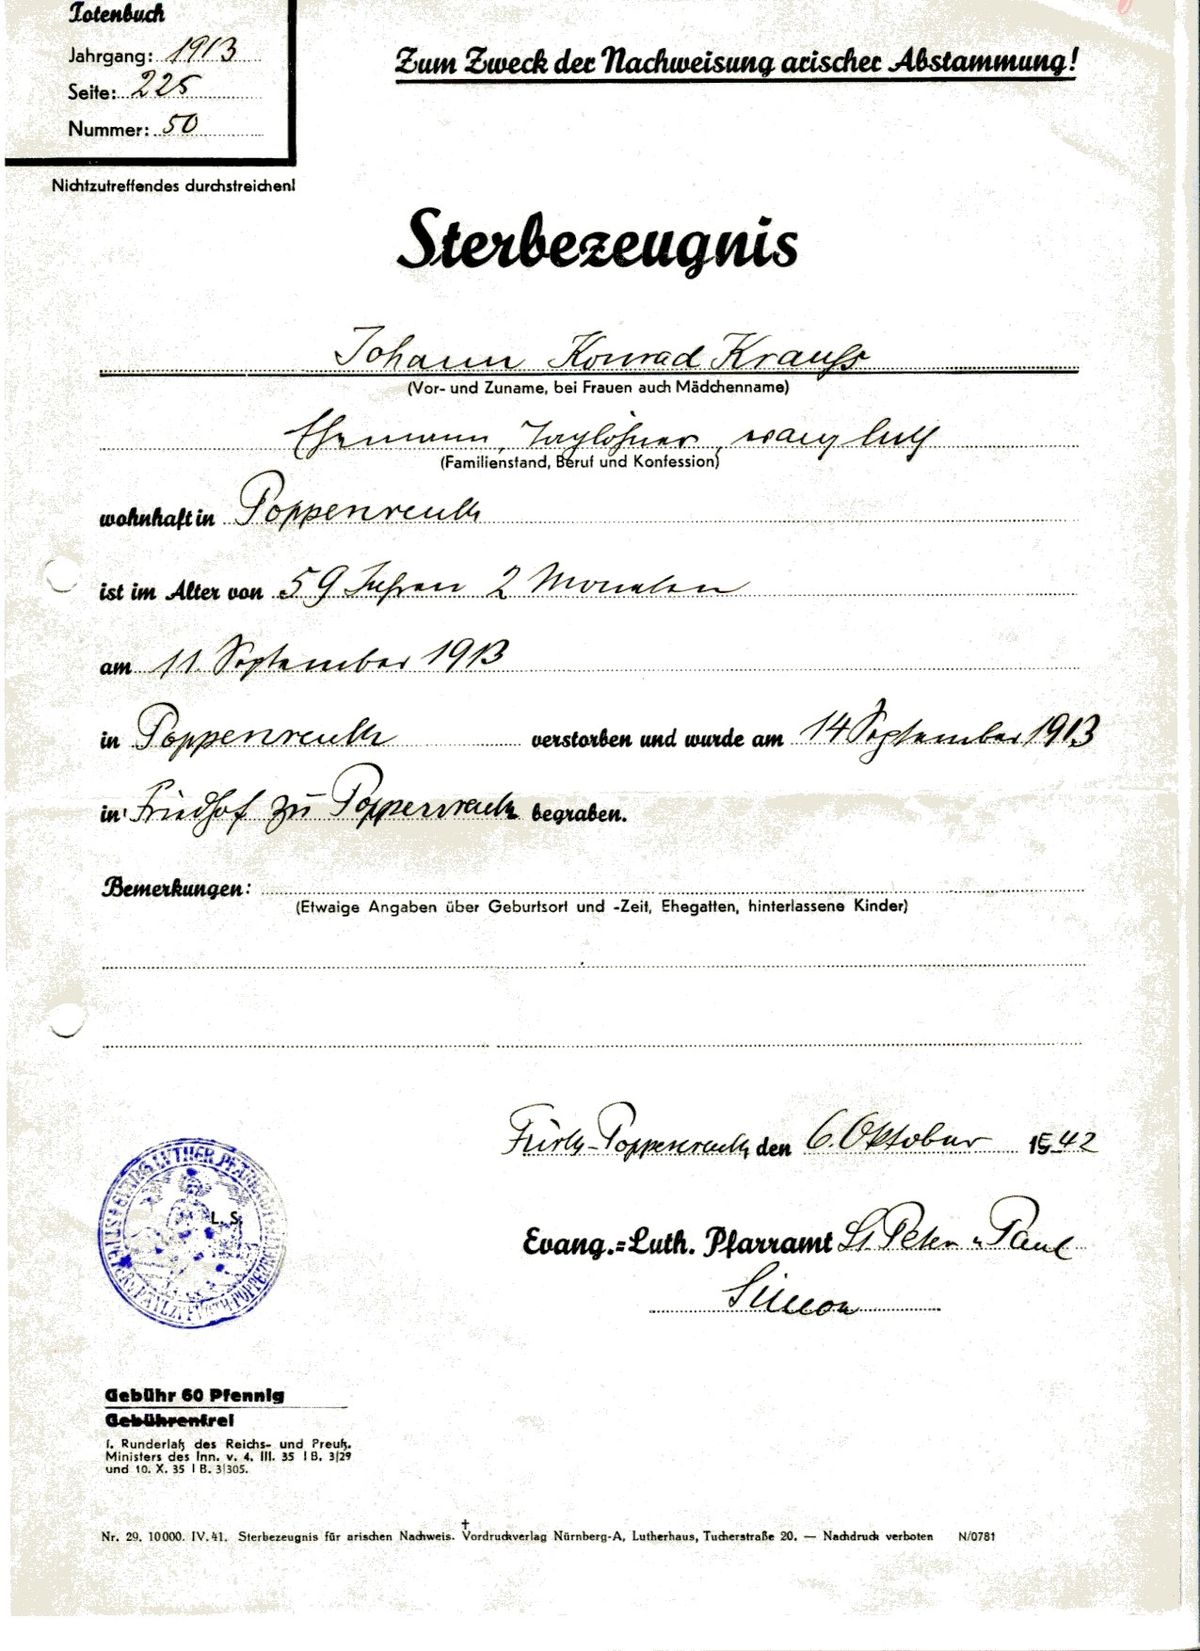 Totenbuch
Jahrgang: 1913
Seite: 225
Nummer: 50
Nichtzutreffendes durchstreichen!
Zum Zweck der Nachweisung arischer Abstammung!
Sterbezeugnis
Johann Konrad Krauß
(Vor- und Zuname, bei Frauen auch Mädchenname)
Ehemann, Taglöhner, evang luth
(Familienstand, Beruf und Konfession)
wohnhaft in Poppenreuth
ist im Alter von 59 Jahren 2 Monaten
am 11. September 1913
in Poppenreuth verstorben und wurde am 14 September 1913
in Friedhof zu Poppenreuth begraben.
Bemerkungen:
(Etwaige Angaben über Geburtsort und -Zeit, Ehegatten, hinterlassene Kinder)
Fürth-Poppenreuth, den 6. Oktober 1942
Evang.=Luth. Pfarramt St. Peter u Paul
Simon
L. S.
Gebühr 60 Pfennig
Gebührenfrei
f. Runderlaß des Reichs- und Preuß.
Ministers des Inn. v. 4. III. 35 I B. 3/29
und 10. X. 35 I B. 3/305.
Nr. 29. 10000. IV. 41. Sterbezeugnis für arischen Nachweis. Vordruckverlag Nürnberg-A, Lutherhaus, Tucherstraße 20. — Nachdruck verboten N/0781